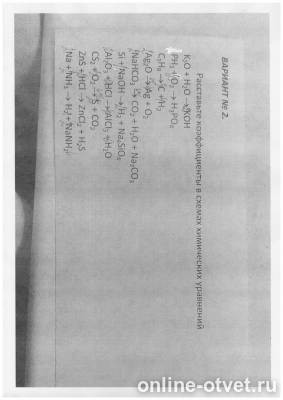 ВАРИАНТ № 2.
Расставьте коэффициенты в схемах химических уравнений
K₂O + H₂O → KOH
PH₃ + O₂ → H₃PO₄
→ C + H₂
Ag₂O → Ag + O₂
NaHCO₃ → CO₂ + H₂O + Na₂CO₃
Si + NaOH → H₂ + Na₄SiO₄
Al₂O₃ + HCl → AlCl₃ + H₂O
CS₂ + O₂ → S + CO₂
ZnS + HCl → ZnCl₂ + H₂S
Na + NH₃ → H₂ + NaNH₂
online-otvet.ru